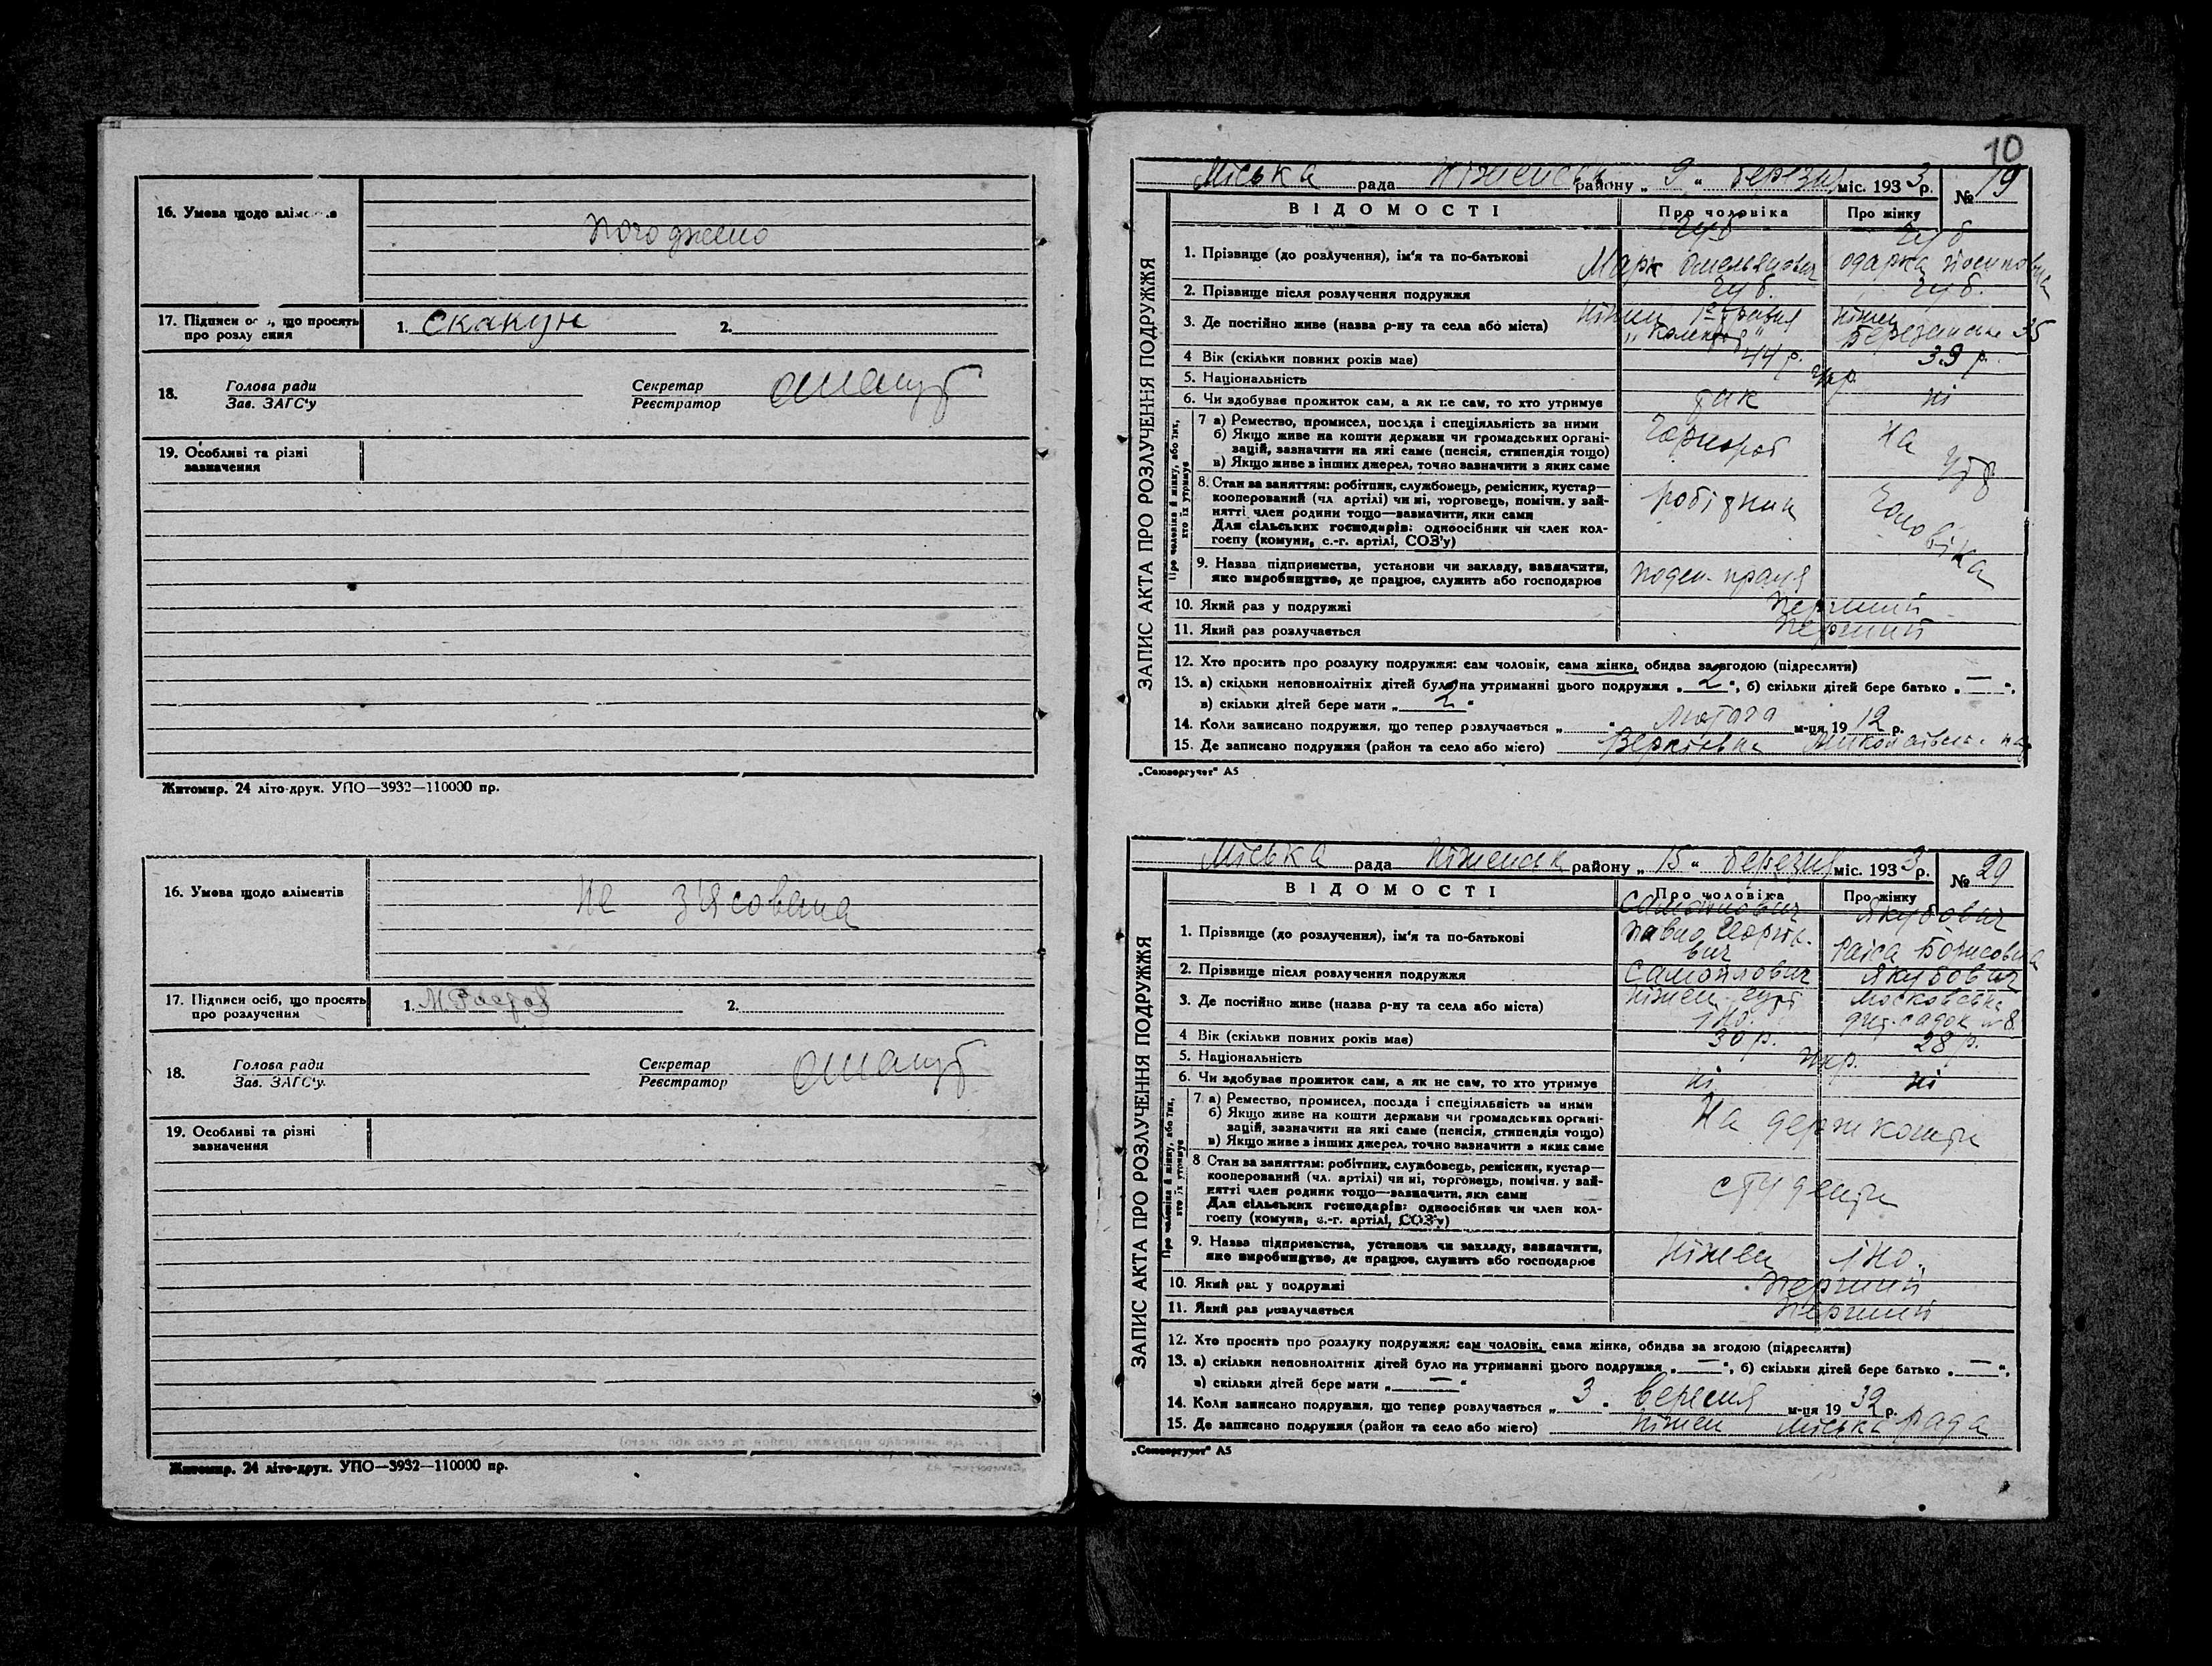 16. Умова щодо аліментів
Погоджено
17. Підписи осіб, що просять
про розлучення
1. Скакун 2.
18. Голова ради
Зав. ЗАГС'у
Секретар
Реєстратор
19. Особливі та різні
зазначення
Житомир. 24 літо-друк. УПО—3932—110000 пр.
16. Умова щодо аліментів
Не з'ясована
17. Підписи осіб, що просять
про розлучення
1. 2.
18. Голова ради
Зав. ЗАГС'у
Секретар
Реєстратор
19. Особливі та різні
зазначення
Житомир. 24 літо-друк. УПО—3932—110000 пр.
10
ЗАПИС АКТА ПРО РОЗЛУЧЕННЯ ПОДРУЖЖЯ
Міська рада Ніженськ району „ 9 “ березня міс. 1933 р. № 19
ВІДОМОСТІ Про чоловіка Про жінку
Чуб Чуб
1. Прізвище (до розлучення), ім'я та по-батькові Марк Омелянович Одарка Йосиповна
2. Прізвище після розлучення подружжя Чуб. Чуб.
3. Де постійно живе (назва р-ну та села або міста) Ніжен 1го травня Ніжен
Березанська 35
4 Вік (скільки повних років має) 44 р. 39 р.
5. Національність Укр.
6. Чи здобуває прожиток сам, а як не сам, то хто утримує так ні
Про чоловіка й жінку, або тих, хто їх утримує
7 а) Ремество, промисел, посада і спеціяльність за ними
б) Якщо живе на кошти держави чи громадських органі-
зацій, зазначити на які саме (пенсія, стипендія тощо)
в) Якщо живе в інших джерел, точно зазначити з яких саме
Чорнороб На утр
8. Стан за заняттям: робітник, службовець, ремісник, кустар—
кооперований (чл. артілі) чи ні, торговець, помічн. у зай-
нятті член родини тощо—зазначити, яки сами
Для сільських господарів: одноосібник чи член кол-
госпу (комуни, с.-г. артілі, СОЗ'у)
робітник Чоловіка
9. Назва підприємства, установи чи закладу, зазначити,
яке виробництво, де працює, служить або господарює
поден. праця
10. Який раз у подружжі Перший
11. Який раз розлучається Перший
12. Хто просить про розлуку подружжя: сам чоловік, сама жінка, обидва за згодою (підреслити)
13. а) скільки неповнолітніх дітей було на утриманні цього подружжя „ 2 “, б) скільки дітей бере батько „ — “.
в) скільки дітей бере мати „ 2 “
14. Коли записано подружжя, що тепер розлучається „ “ лютого м-ця 1912 р.
15. Де записано подружжя (район та село або місто) Веркіевка
„Союзоргучет“ А5
ЗАПИС АКТА ПРО РОЗЛУЧЕННЯ ПОДРУЖЖЯ
Міська рада Ніженськ району „ 15 “ березня міс. 1933 р. № 20
ВІДОМОСТІ Про чоловіка Про жінку
Самойлович Якубович
1. Прізвище (до розлучення), ім'я та по-батькові Павло Георгіє-
вич Раіса Борисовна
2. Прізвище після розлучення подружжя Самойлович Якубович
3. Де постійно живе (назва р-ну та села або міста) Ніжен гурт Московська
ІНО. дит. садок № 8.
4 Вік (скільки повних років має) 30 р. 28 р.
5. Національність Укр.
6. Чи здобуває прожиток сам, а як не сам, то хто утримує ні ні
Про чоловіка й жінку, або тих, хто їх утримує
7 а) Ремество, промисел, посада і спеціяльність за ними
б) Якщо живе на кошти держави чи громадських органі-
зацій, зазначити на які саме (пенсія, стипендія тощо)
в) Якщо живе з інших джерел, точно зазначити з яких саме
На держ кошти
8 Стан за заняттям: робітник, службовець, ремісник, кустар—
кооперований (чл. артілі) чи ні, торговець, помічн. у зай-
нятті член родини тощо—зазначити, яки сами
Для сільських господарів: одноосібник чи член кол-
госпу (комуни, с.-г. артілі, СОЗ'у)
студенти
9. Назва підприємства, установа чи закладу, зазначити,
яке виробництво, де працює, служить або господарює
Ніжен ІНО.
10. Який раз у подружжі Перший
11. Який раз розлучається Перший
12. Хто просить про розлуку подружжя: сам чоловік, сама жінка, обидва за згодою (підреслити)
13. а) скільки неповнолітніх дітей було на утриманні цього подружжя „ — “, б) скільки дітей бере батько „ — “.
в) скільки дітей бере мати „ — “
14. Коли записано подружжя, що тепер розлучається „ 3 “ вересня м-ця 1932 р.
15. Де записано подружжя (район та село або місто) Ніжен міська рада
„Союзоргучет“ А5